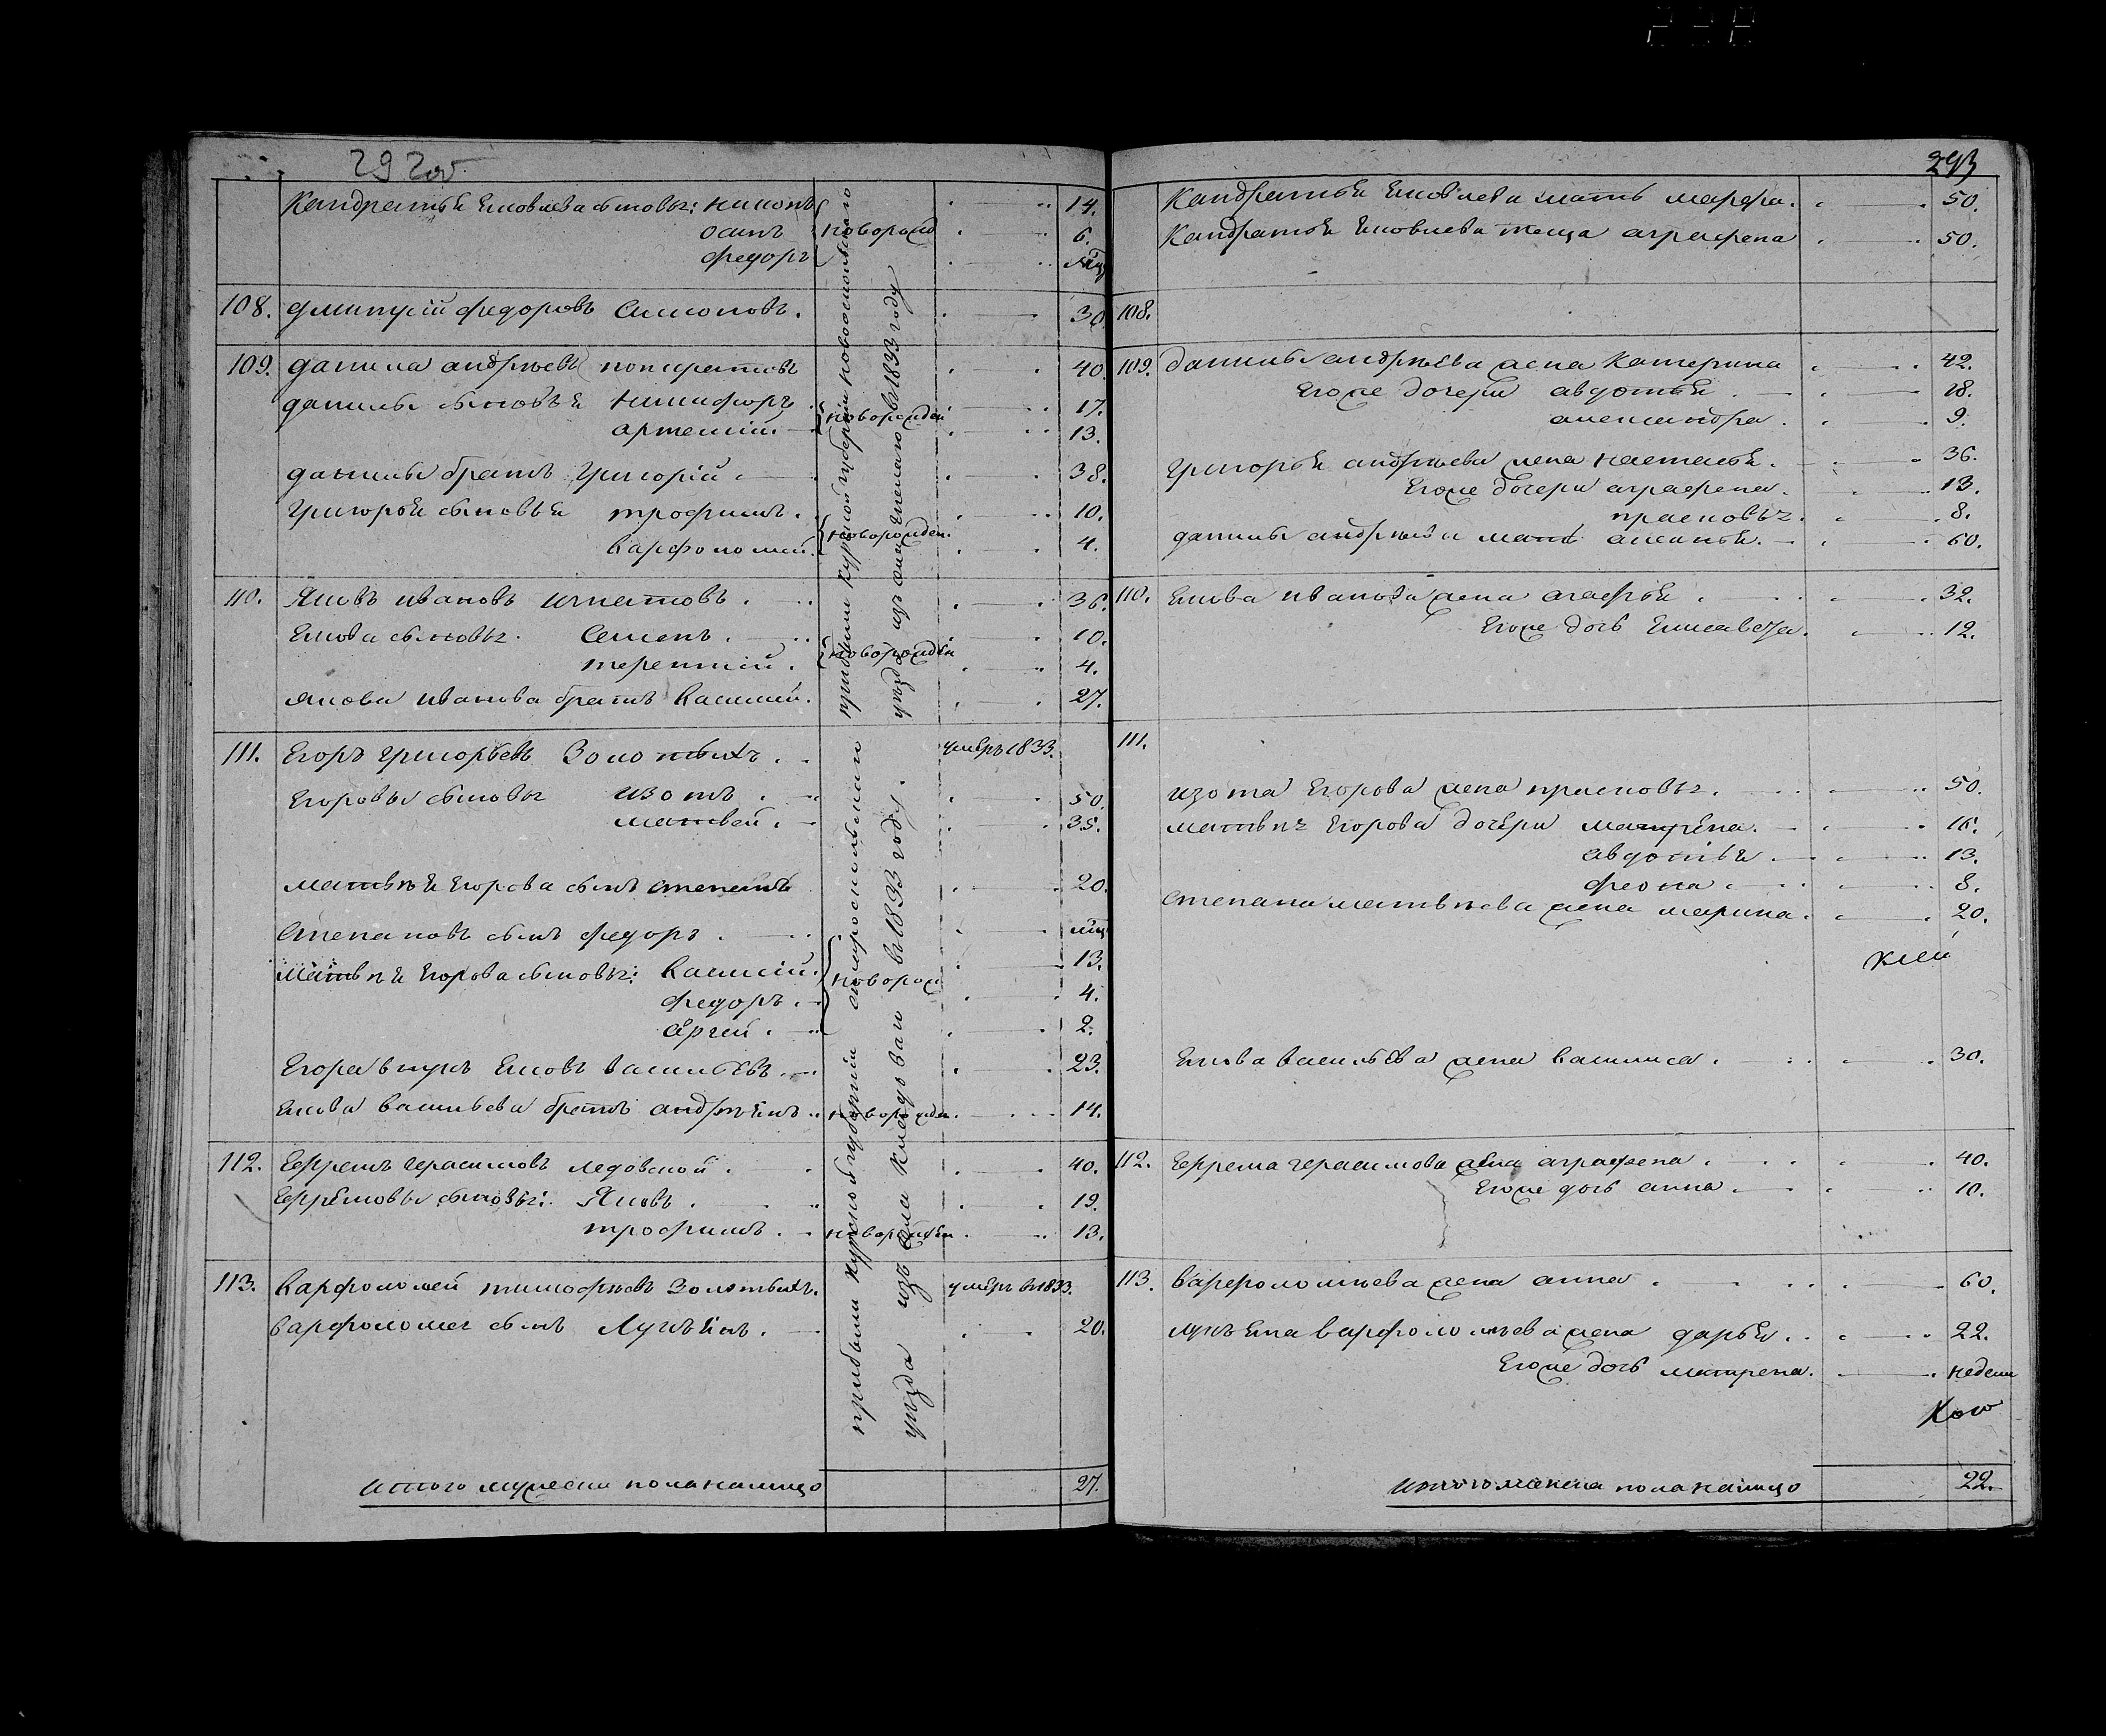 292об.
Кандратья Яковлева сыновья: никонъ 14.
осипъ новорожд 6.
федоръ
108. дмитрій федоровъ Симоновъ. 30.
109. данила андреевъ понкратовъ 40.
данилы сыновья никифоръ 17.
артемій. новорожден 13.
данилы братъ Григорій 38.
Григорья сыновья трофимъ. 10.
варфоломей. новорожден. 4.
110. Яковъ ивановъ игнатовъ. 36.
Якова сыновья. Семенъ. 10.
терентий. новорожден 4.
якова иванова братъ василий. 27.
прибыли курской губерніи новооскольского
уезда изъ въ 1833 году
111. Егоръ григорьевъ Золотыхъ. умеръ 1833.
Егоровы сыновья изотъ. 50.
матвей. 35.
матвея Егорова сынъ степанъ 20.
Степановъ сынъ федоръ.
Матвея Егорова сыновья: василий. 13.
федоръ. новорож 4.
сергей. 2.
Егора внукъ Яковъ васильевъ 23.
Якова васильева братъ андреянъ новорожден. 14.
112. Ефремъ герасимовъ ледовской. 40.
Ефремовы сыновья: Яковъ. 19.
трофимъ. новорожден 13.
113. варфоломей тимофеевъ Золотыхъ. умеръ в 1833.
варфоломея сынъ Лукьянъ. 20.
прибыли курской губерніи старооскольского
уезда изъ села въ 1833 году.
итого мужеска пола налицо 27.
293
Кандратья Яковлева мать марфа. 50.
Кандратья Яковлева теща аграфена 50.
108.
109. данилы андреева жена Катерина 42.
Егоже дочери авдотья. 18.
александра. 9.
григорья андреева жена наталья. 36.
Егоже дочери аграфена. 13.
прасковья. 8.
данилы андреева мать аксинья. 60.
110. Якова иванова жена агафья. 32.
Егоже дочь Елисавета. 12.
111.
изота Егорова жена прасковья. 50.
матвея Егорова дочери матрена. 16.
авдотья. 13.
феона. 8.
степана матвеева жена марина. 20.
Якова васильева жена василиса. 30.
112. Ефрема герасимова жена аграфена. 40.
Егоже дочь анна. 10.
113. варфоломеева жена анна. 60.
лукьяна варфоломеева жена дарья. 22.
Егоже дочь матрена. недели
итого женска пола налицо 22.